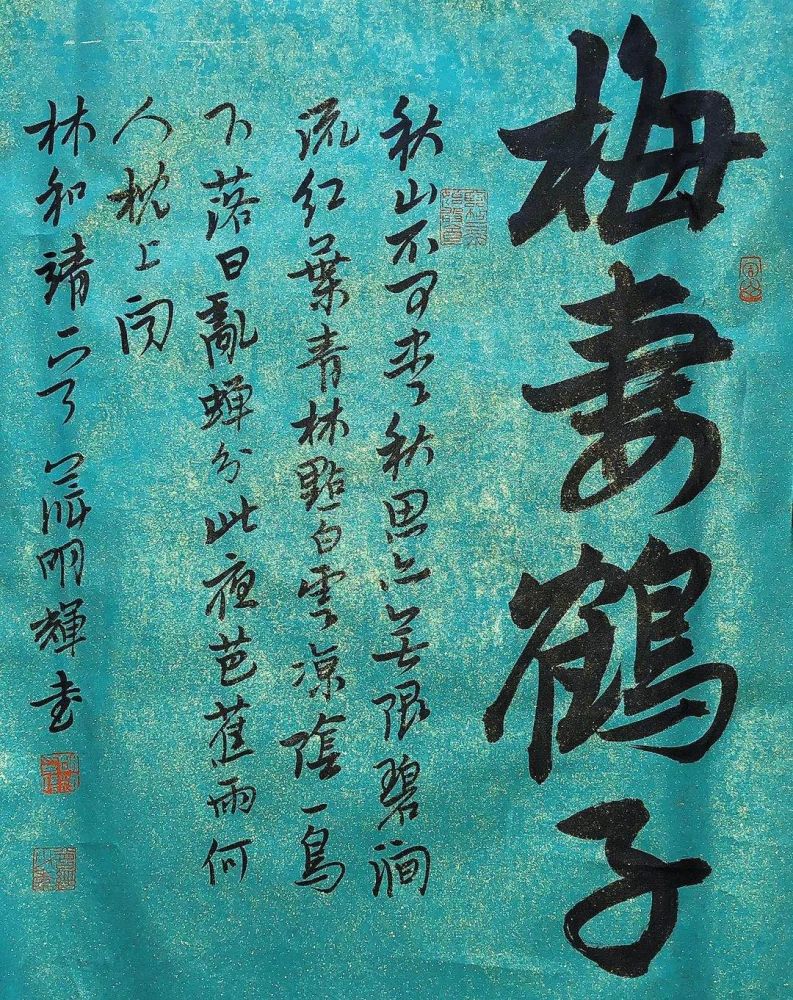 梅妻鶴子
秋山不可尽秋思亦无限碧澗
流红葉青林點白雲凉陰一鳥
下落日亂蟬分此夜芭蕉雨何
人枕上闻
林和靖 明輝书